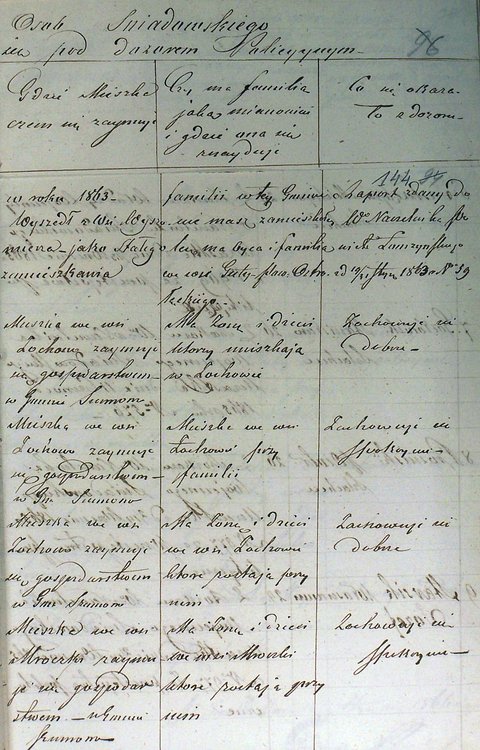 Osob Sniadowskiego
pod dozorem Policyjnym
96
Gdzie Mieszka
czem się zaymuje
Czy ma familia
i gdzie ona się
znayduje
Co się okaza-
ło z dozoru
144
w roku 1863
zamieszkania
familii w tey Gminie
nie masz
ma byca i familia
we wsi
Raport zdany do
Wo Naczelnika Po-
wiatu Łomzynskiego
1863 r No 59
Mieszka we wsi
Zochowo zaymuje
się gospodarstwem
w Gminie Szumowo
Ma Zonę i dzieci
ktorzy mieszkaja
w Zochowie
Zachowuje się
dobrze
Mieszka we wsi
Zochowo zaymuje
się gospodarstwem
w Gm. Szumowo
Mieszka we wsi
Zochowo przy
familii
Zachowuje się
spokoynie
Mieszka we wsi
Zochowo zaymuje
się gospodarstwem
w Gm Szumowo
Ma Zonę i dzieci
we wsi Zochowie
ktore zostaja przy
nim
Zachowuje się
dobrze
Mieszka we wsi
Mroczki zaymu
je się gospodar
stwem w Gminie
Szumowo
Ma Zonę i dzieci
we wsi Mroczki
ktore zostaja przy
nim
Zachowuje się
spokoynie